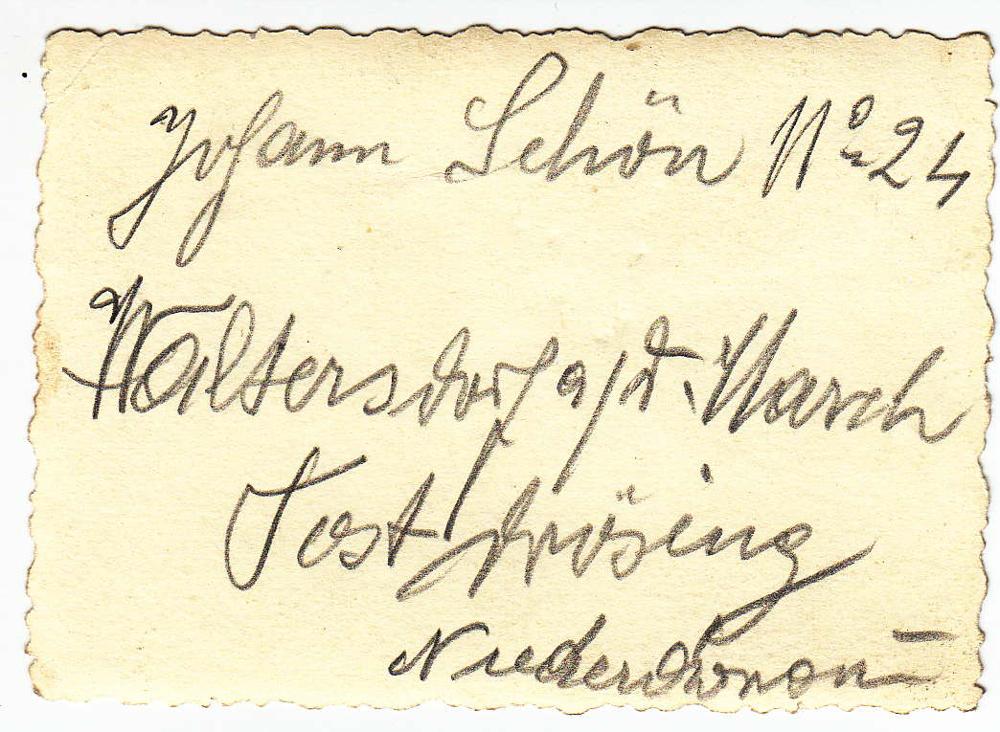 Johann Schön No 24
Waltersdorf a/d. March
Post Drösing
Niederdonau